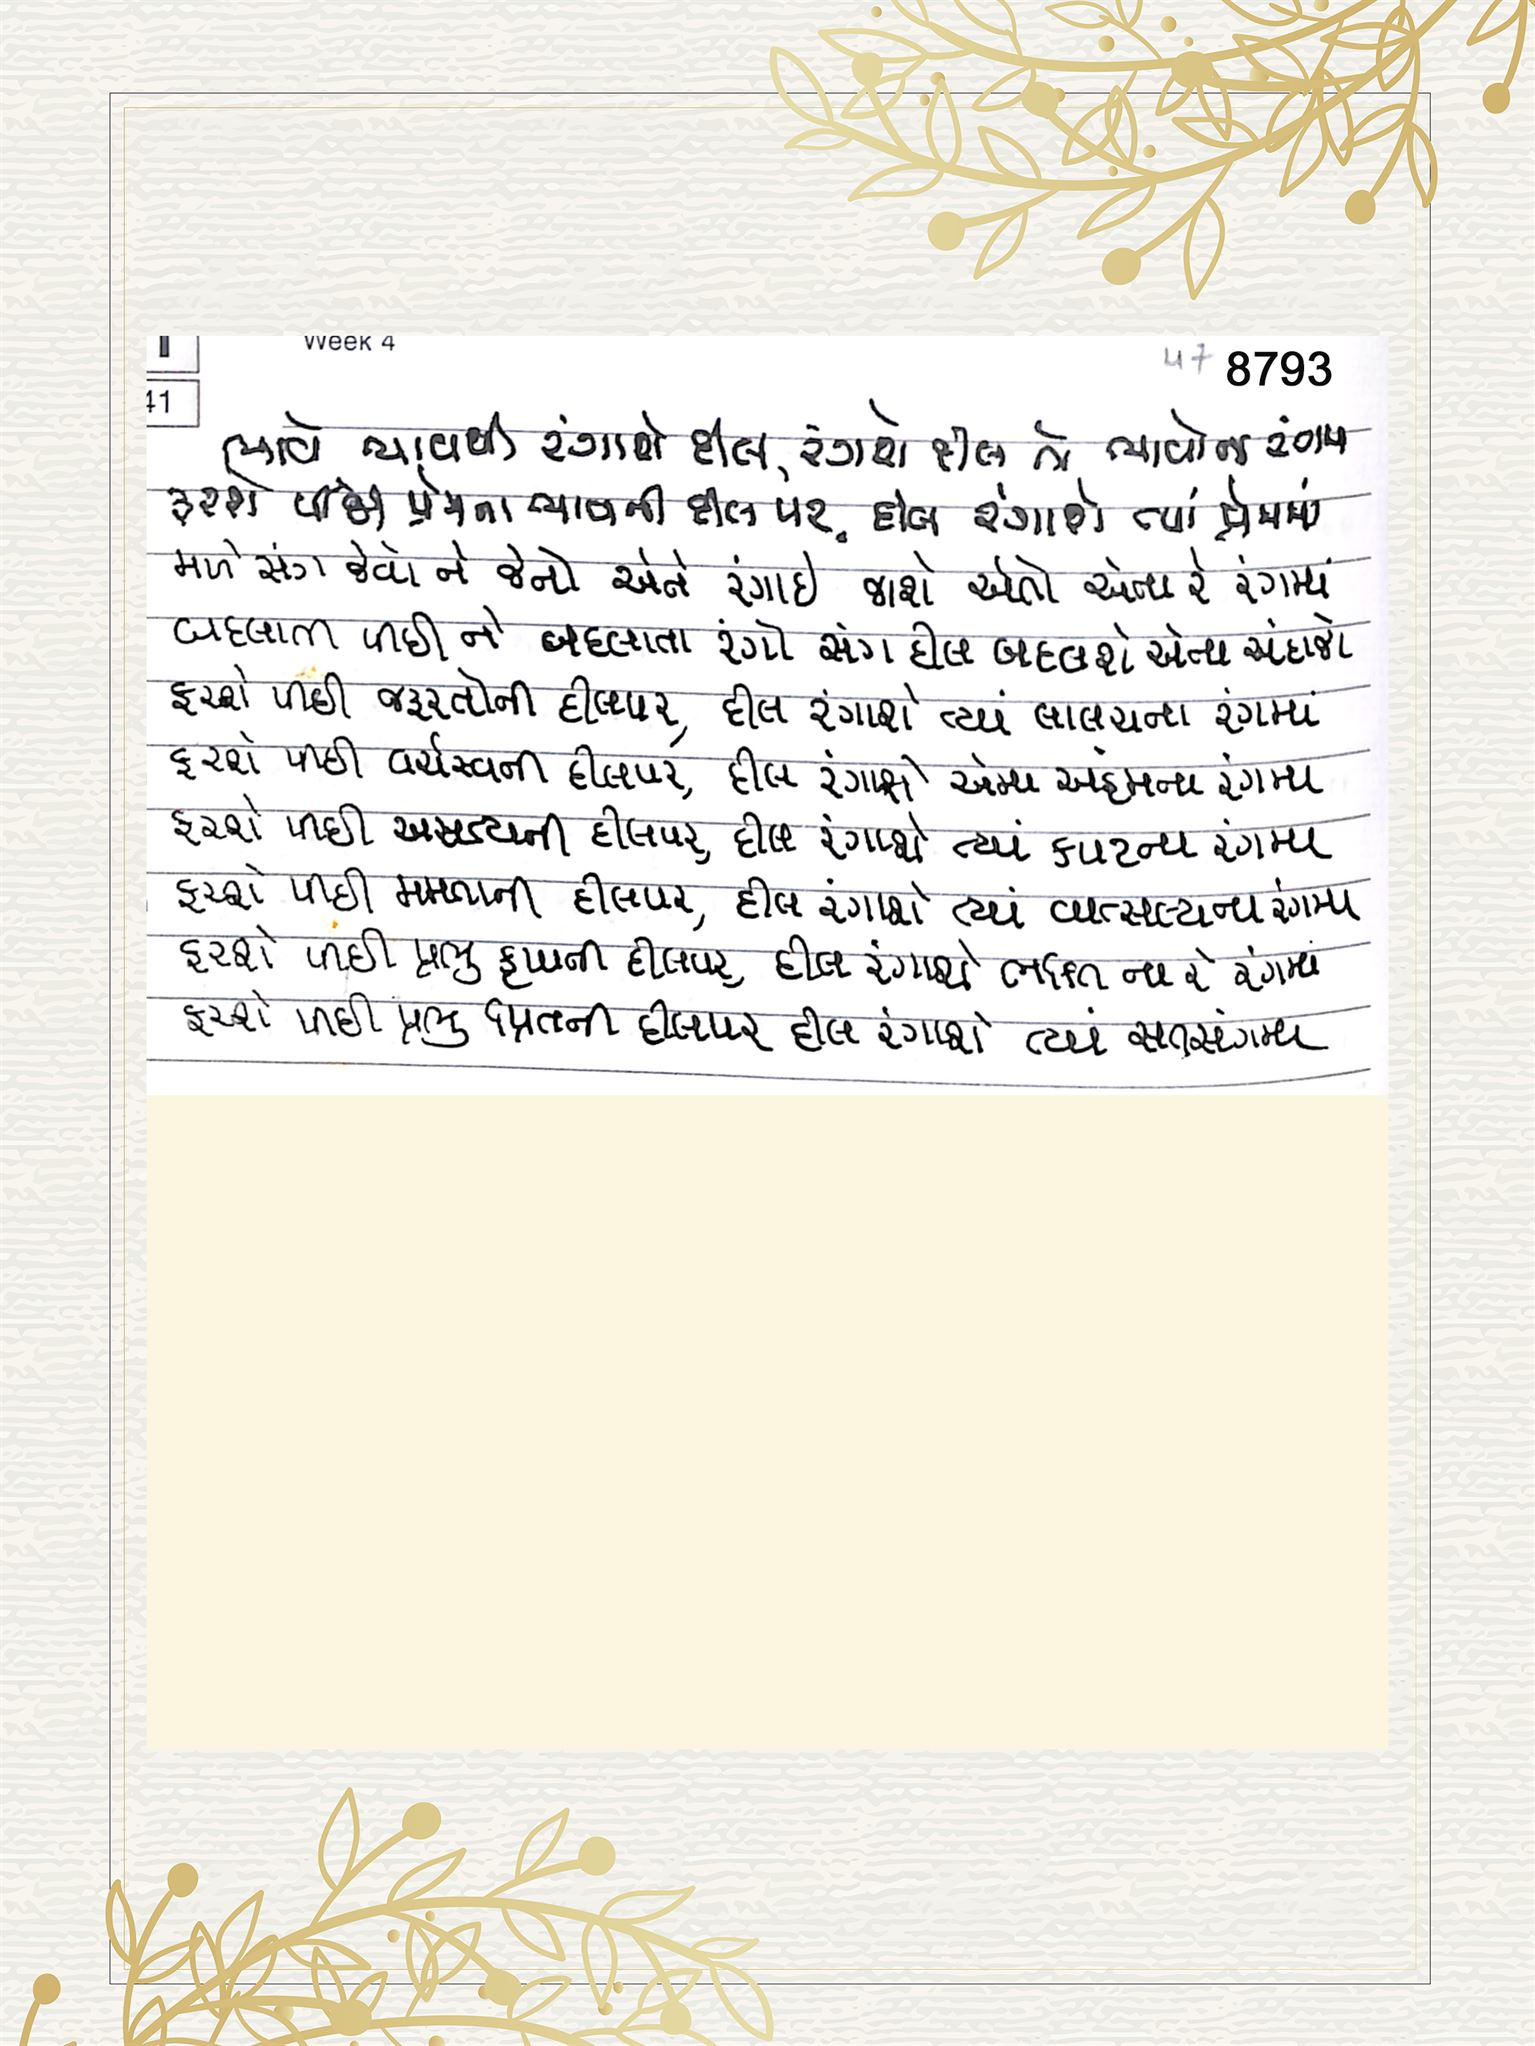 Week 4
47 8793
41
ભાવે ભાવથી રંગાશે દીલ, રંગાશે દીલ તો ભાવોના રંગમાં
ફરશે પીંછી પ્રેમના ભાવની દીલ પર, દીલ રંગાશે ત્યાં પ્રેમમાં
મળે સંગ જેવો ને જેનો એને રંગાઈ જાશે એતો એના રે રંગમાં
બદલાતી પીંછી ને બદલાતા રંગો સંગ દીલ બદલશે એના અંદાજો
ફરશે પીંછી જરૂરતોની દીલપર, દીલ રંગાશે ત્યાં લાલચના રંગમાં
ફરશે પીંછી વર્ચસ્વની દીલપર, દીલ રંગાશે એમાં અહંમના રંગમાં
ફરશે પીંછી અસત્યની દીલપર, દીલ રંગાશે ત્યાં કપટના રંગમાં
ફરશે પીંછી મમતાની દીલપર, દીલ રંગાશે ત્યાં વાત્સલ્યના રંગમાં
ફરશે પીંછી પ્રભુ કૃપાની દીલપર, દીલ રંગાશે ભક્તિ ના રે રંગમાં
ફરશે પીંછી પ્રભુ પ્રિતની દીલપર દીલ રંગાશે ત્યાં સતસંગમાં